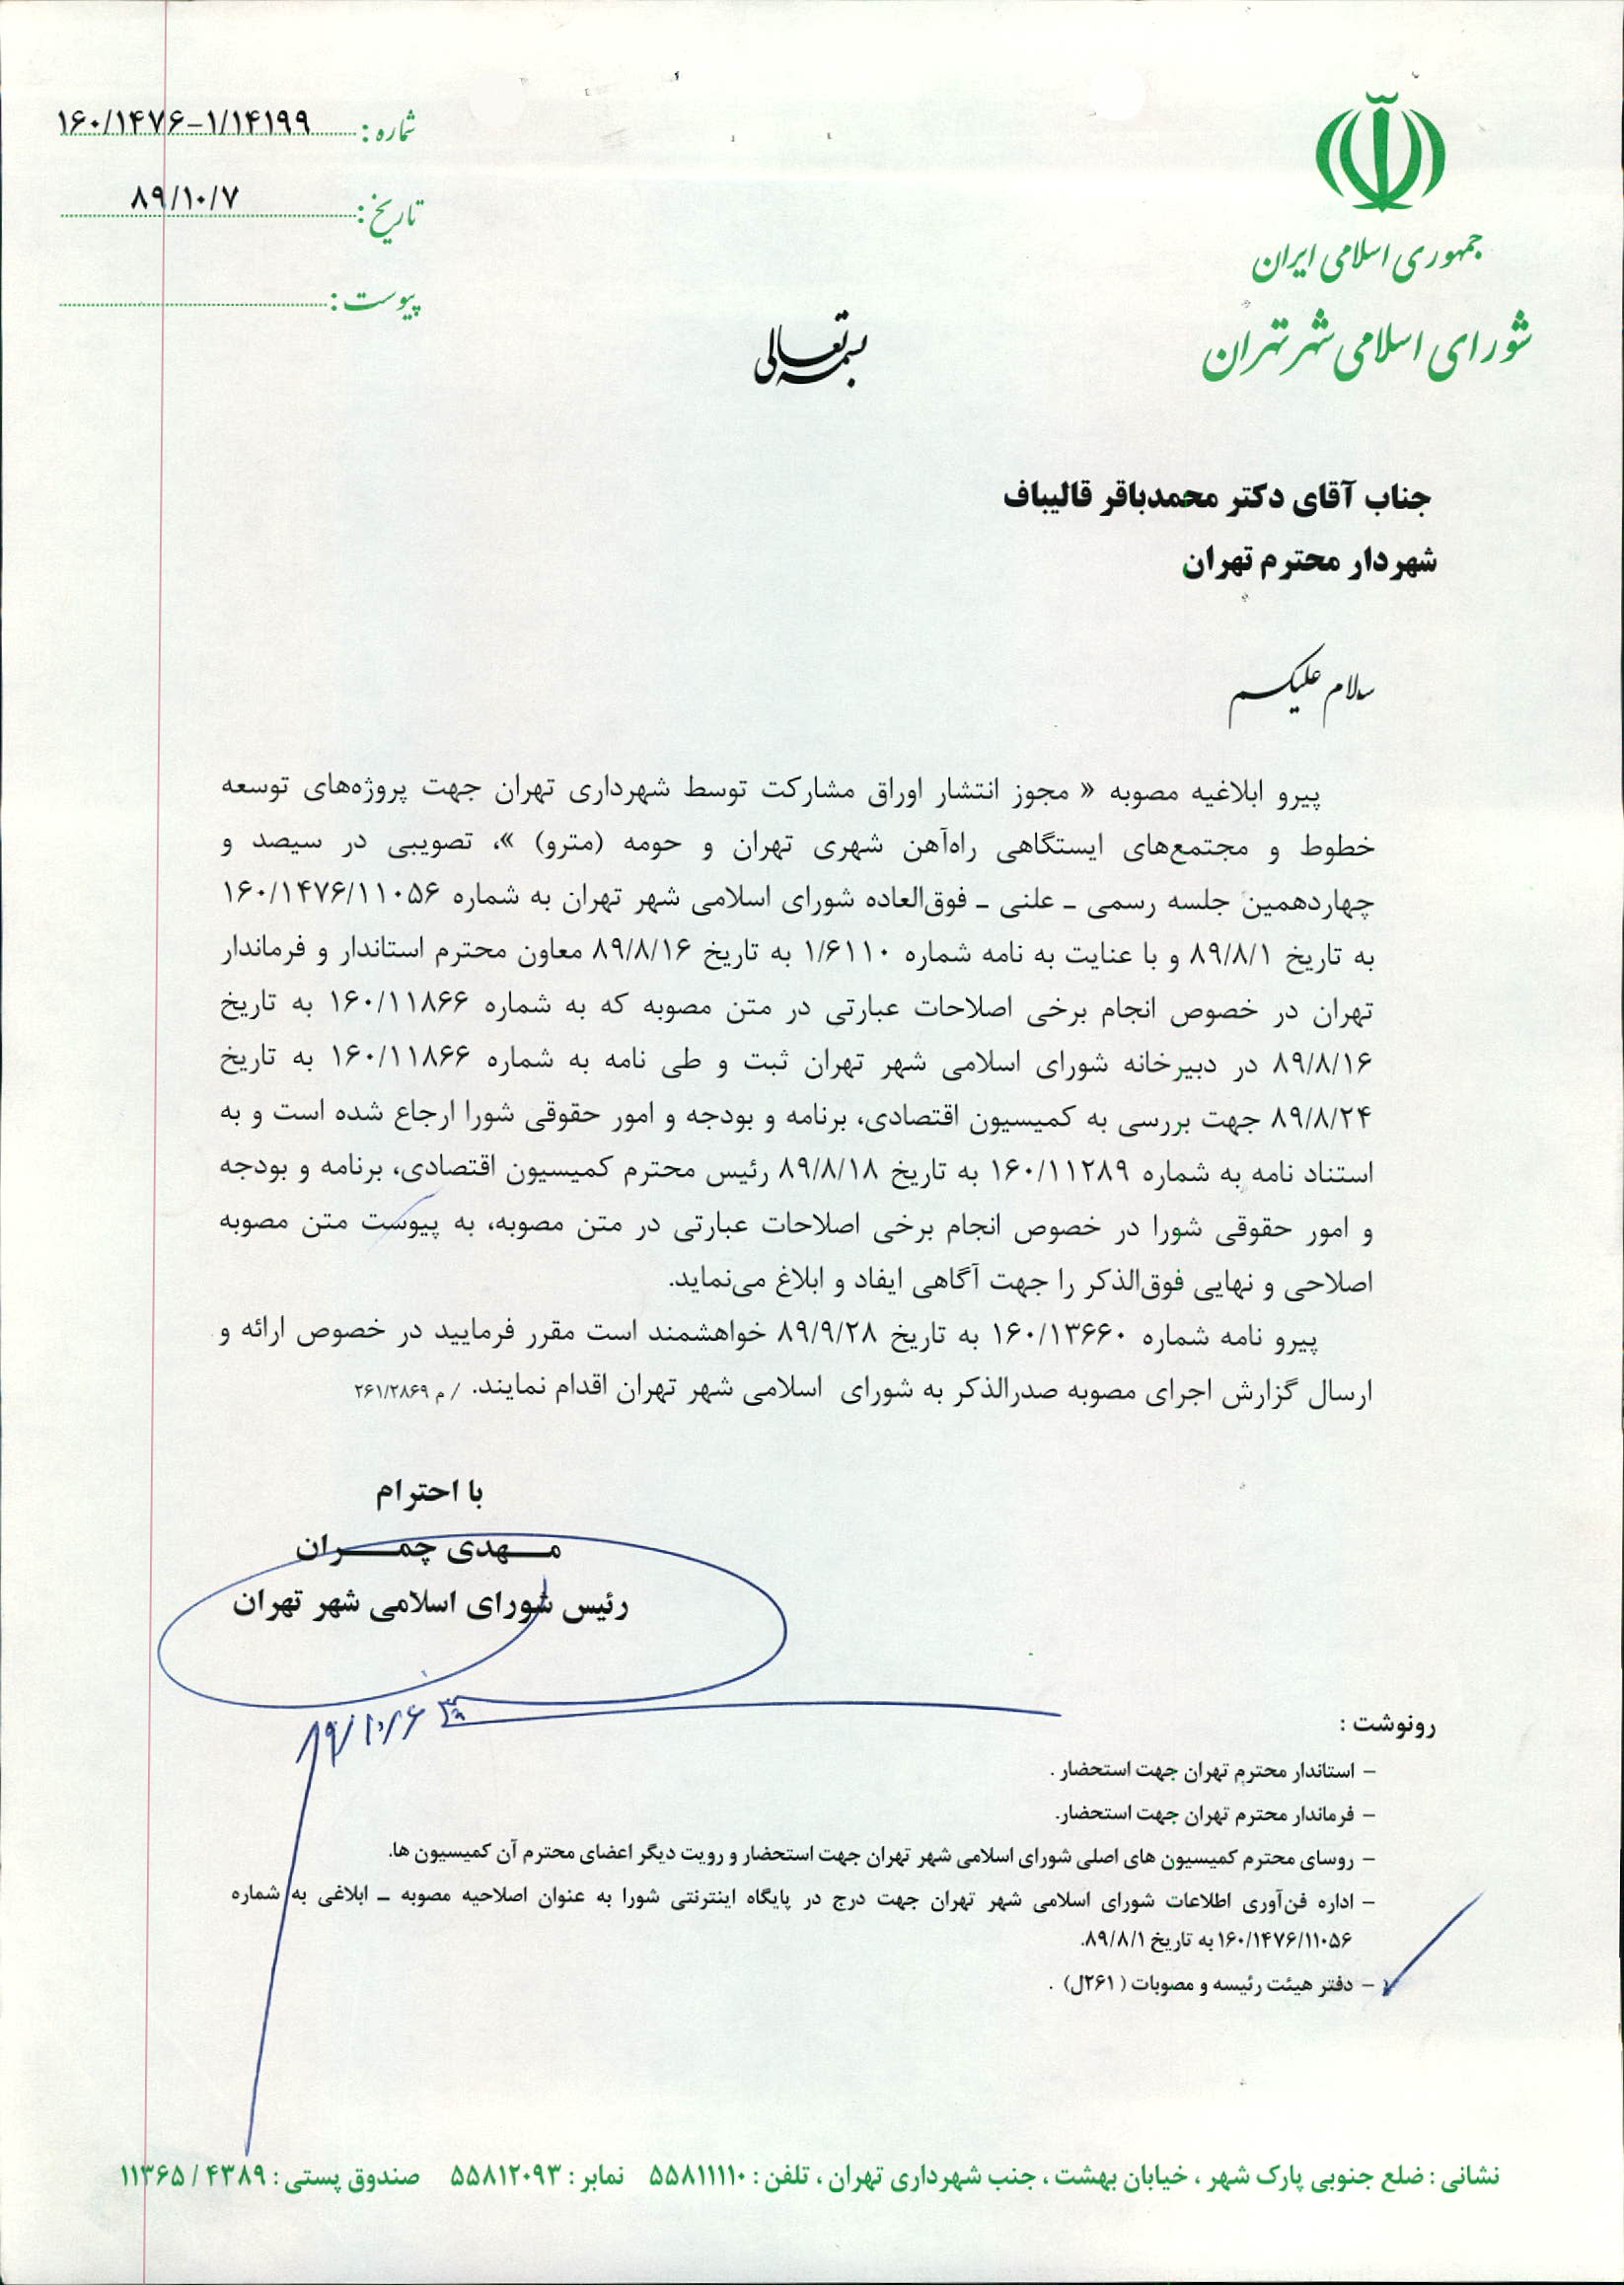 جمهوری اسلامی ایران
شورای اسلامی شهر تهران
شماره : ۱۶۰/۱۴۷۶-۱/۱۴۱۹۹
تاریخ : ۸۹/۱۰/۷
پیوست :
بسمه تعالی
جناب آقای دکتر محمدباقر قالیباف
شهردار محترم تهران
سلام علیکم
پیرو ابلاغیه مصوبه « مجوز انتشار اوراق مشارکت توسط شهرداری تهران جهت پروژه‌های توسعه
خطوط و مجتمع‌های ایستگاهی راه‌آهن شهری تهران و حومه (مترو) »، تصویبی در سیصد و
چهاردهمین جلسه رسمی ـ علنی ـ فوق‌العاده شورای اسلامی شهر تهران به شماره ۱۶۰/۱۴۷۶/۱۱۰۵۶
به تاریخ ۸۹/۸/۱ و با عنایت به نامه شماره ۱/۶۱۱۰ به تاریخ ۸۹/۸/۱۶ معاون محترم استاندار و فرماندار
تهران در خصوص انجام برخی اصلاحات عبارتی در متن مصوبه که به شماره ۱۶۰/۱۱۸۶۶ به تاریخ
۸۹/۸/۱۶ در دبیرخانه شورای اسلامی شهر تهران ثبت و طی نامه به شماره ۱۶۰/۱۱۸۶۶ به تاریخ
۸۹/۸/۲۴ جهت بررسی به کمیسیون اقتصادی، برنامه و بودجه و امور حقوقی شورا ارجاع شده است و به
استناد نامه به شماره ۱۶۰/۱۱۲۸۹ به تاریخ ۸۹/۸/۱۸ رئیس محترم کمیسیون اقتصادی، برنامه و بودجه
و امور حقوقی شورا در خصوص انجام برخی اصلاحات عبارتی در متن مصوبه، به پیوست متن مصوبه
اصلاحی و نهایی فوق‌الذکر را جهت آگاهی ایفاد و ابلاغ می‌نماید.
پیرو نامه شماره ۱۶۰/۱۳۶۶۰ به تاریخ ۸۹/۹/۲۸ خواهشمند است مقرر فرمایید در خصوص ارائه و
ارسال گزارش اجرای مصوبه صدرالذکر به شورای اسلامی شهر تهران اقدام نمایند. / م ۲۶۱/۲۸۶۹
با احترام
مهدی چمران
رئیس شورای اسلامی شهر تهران
۸۹/۱۰/۶
رونوشت :
– استاندار محترم تهران جهت استحضار .
– فرماندار محترم تهران جهت استحضار.
– روسای محترم کمیسیون های اصلی شورای اسلامی شهر تهران جهت استحضار و رویت دیگر اعضای محترم آن کمیسیون ها.
– اداره فن‌آوری اطلاعات شورای اسلامی شهر تهران جهت درج در پایگاه اینترنتی شورا به عنوان اصلاحیه مصوبه ـ ابلاغی به شماره
۱۶۰/۱۴۷۶/۱۱۰۵۶ به تاریخ ۸۹/۸/۱.
– دفتر هیئت رئیسه و مصوبات ( ۲۶۱ل) .
نشانی : ضلع جنوبی پارک شهر ، خیابان بهشت ، جنب شهرداری تهران ، تلفن : ۵۵۸۱۱۱۱۰ نمابر : ۵۵۸۱۲۰۹۳ صندوق پستی : ۴۳۸۹ / ۱۱۳۶۵